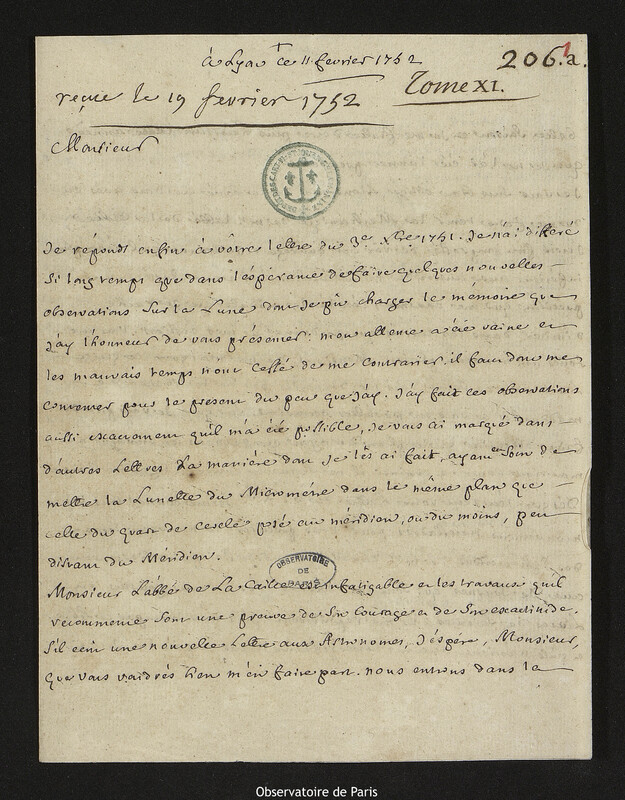 à Lyon ce 11 fevrier 1752
206.a.
1
reçue le 19 fevrier 1752
Tome XI.
Monsieur
Je réponds enfin à vôtre lettre du 3e. Xbre 1751. Je n'ai differé
Si long temps que dans l'espérance de faire quelques nouvelles
observations Sur la Lune dont Je pû charger le mémoire que
J'ay l'honneur de vous présenter: mon attente a été vaine et
les mauvais temps n'ont Cessé de me Contrarier. il faut donc me
Contenter pour le present du peu que J'ay. J'ay fait ces observations
aussi exactement qu'il m'a été possible, Je vous ai marqué dans
d'autres Lettres La manière dont Je les ai fait, ayant en Soin de
mettre la Lunette du Micrométre dans le même plan que
Celle du quart de cercle posé au méridien, ou du moins, peu
distant du Méridien.
OBSERVATOIRE
DE
PARIS
Monsieur L'abbé de La Caille est infatigable et les travaux qu'il
recommence Sont une preuve de Son Courage et de Son exactitude.
S'il ecrit une nouvelle Lettre aux Astronomes, J'éspére, Monsieur,
que vous voudrés bien m'en faire part. nous entrons dans la
Observatoire de Paris